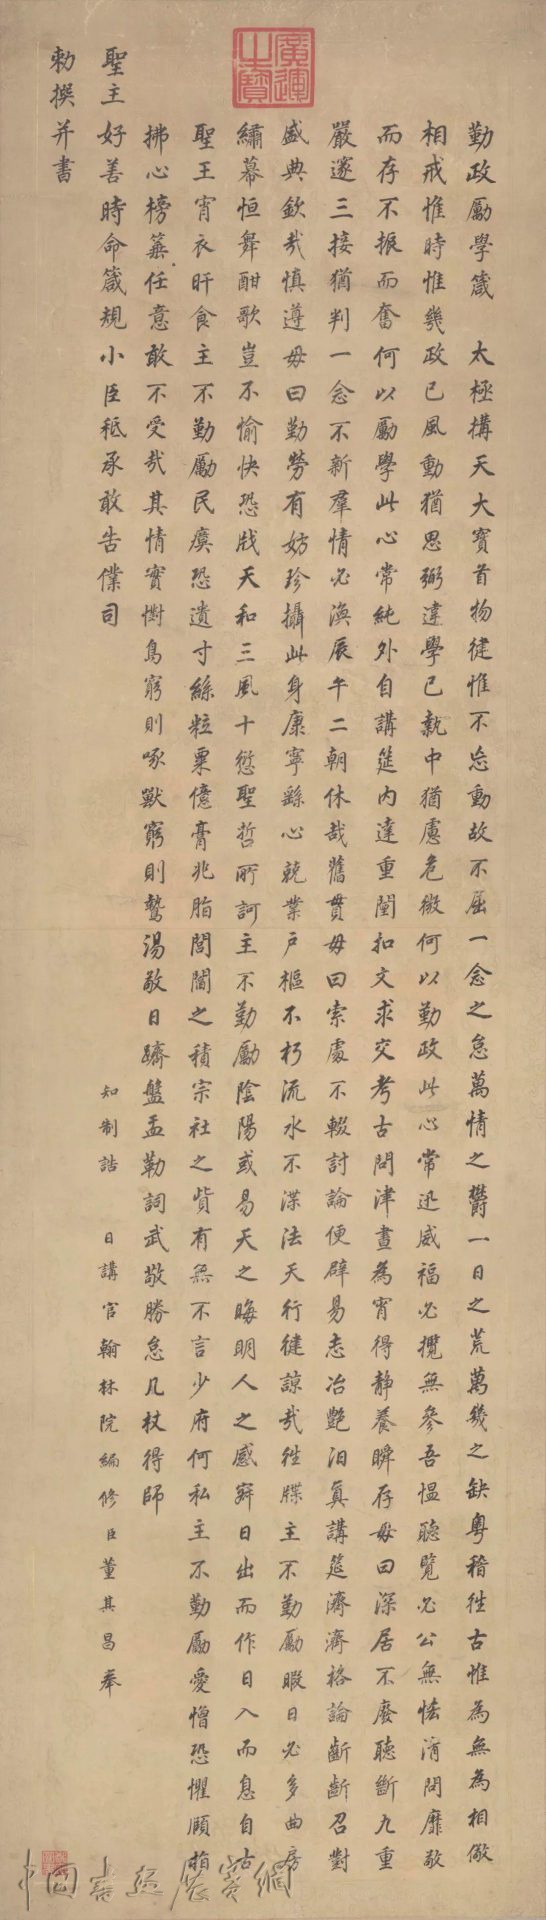 廣運之寶
勤政勵學箴 太極搆天大寶首物健惟不息動故不屈一念之怠萬情之欝一日之荒萬幾之缺粵稽徃古惟為無為相儆
相戒惟時惟幾政已風動猶思弼違學已執中猶慮危微何以勤政此心常迅威福必攬無參吾慍聽覽必公無恡清問靡敢
而存不振而奮何以勵學此心常純外自講筵內達重闈扣文求交考古問津晝為宵得靜養瞬存毋曰深居不廢聽斷九重
嚴邃三接猶判一念不新羣情必渙辰午二朝休哉舊貫毋曰索處不輟討論便辟易志冶艷汨真講筵濟濟裕論齗齗召對
盛典欽哉慎遵毋曰勤勞有妨珍攝此身康寧繇心兢業戶樞不朽流水不渫法天行健諒哉徃牒主不勤勵暇日必多曲房
繡幕恒舞酣歌豈不愉快恐戕天和三風十愆聖哲所訶主不勤勵陰陽或易天之晦明人之感寤日出而作日入而息自古
聖王宵衣旰食主不勤勵民瘼恐遺寸絲粒粟億膏兆脂閭閻之積宗社之貲有無不言少府何私主不勤勵愛憎恐懼頤指
拂心榜箠任意敢不受哉其情實懟鳥窮則啄獸窮則鷙湯敬日躋盤盂勒詞武敬勝怠几杖得師
聖主好善時命箴規小臣秪承敢告僕司
知制誥 日講官翰林院編修臣董其昌奉
勅撰并書
中國書法展賽網